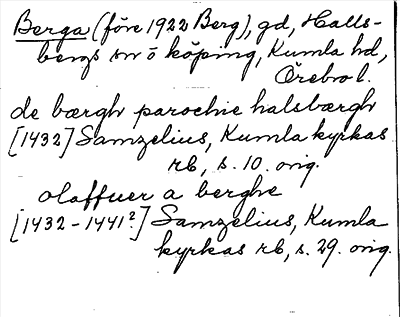 Berga (före 1922 Berg), gd, Halls-
bergs sn o köping, Kumla hd,
Örebro l.
de bærgh parochie halsbærgh
[1432] Samzelius, Kumla kyrkas
rb, s. 10. orig.
olaffuer a berghe
[1432-1441?] Samzelius, Kumla
kyrkas rb, s. 29. orig.